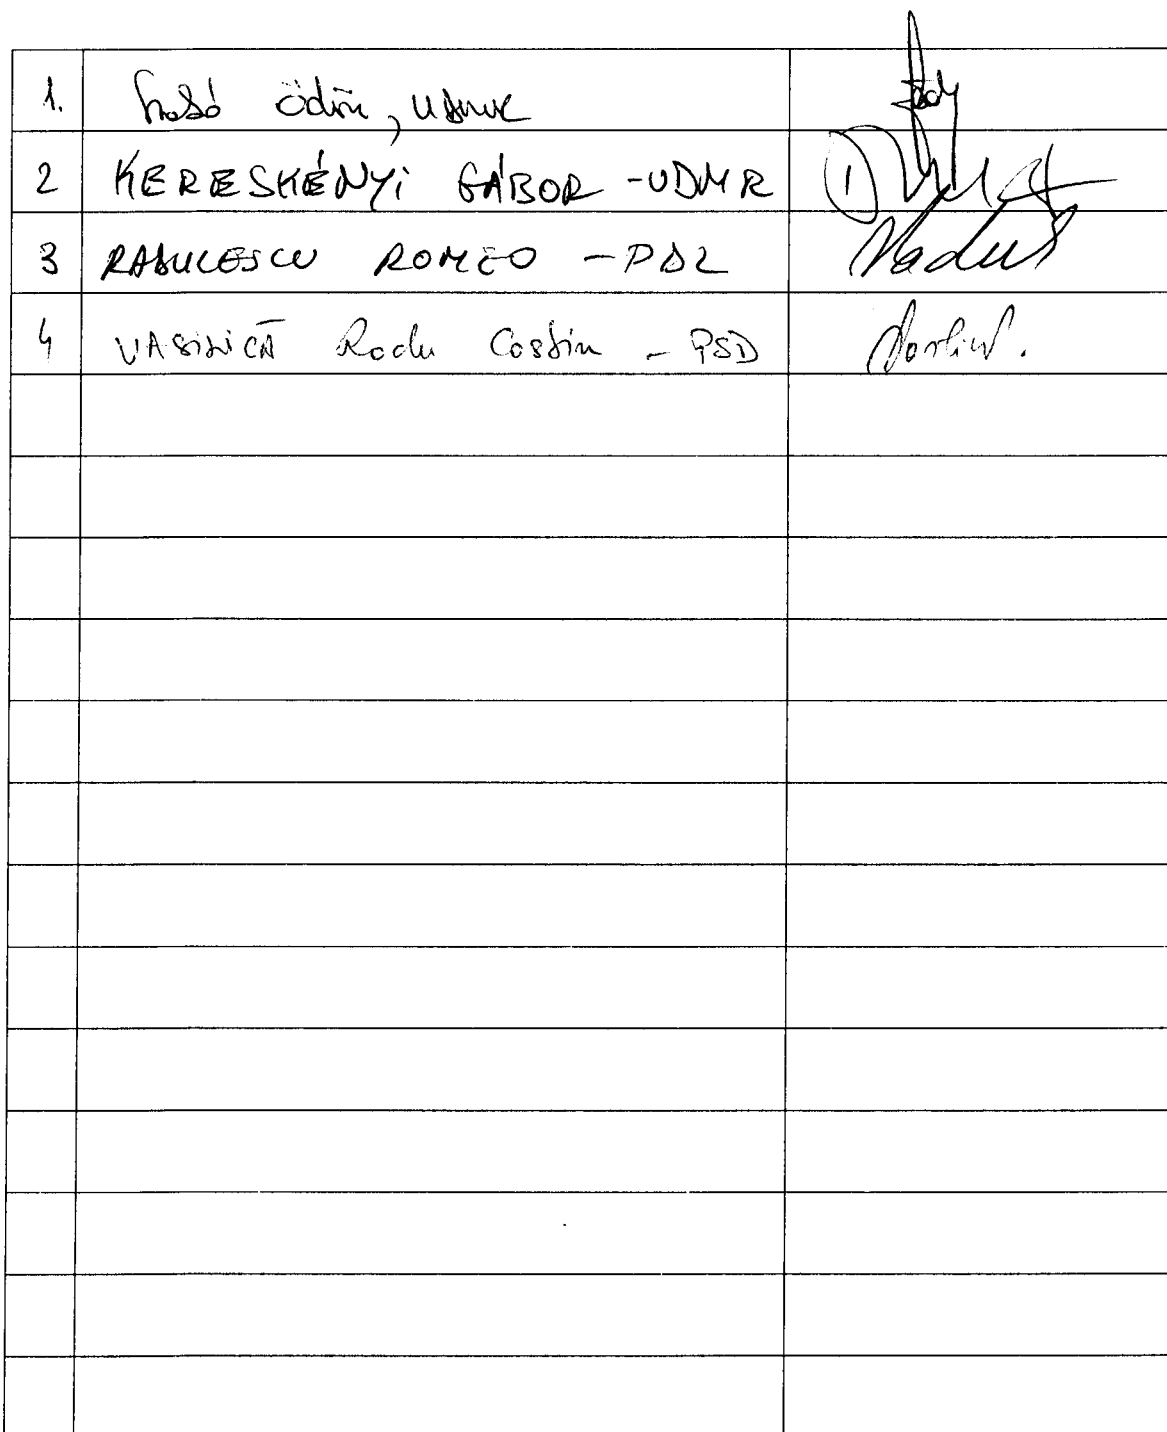 1. Szabó Ödön, UDMR
2 KERESKÉNYi GÁBOR - UDMR
3 RADULESCU ROMEO - PDL
4 VASILICĂ Radu Costin - PSD